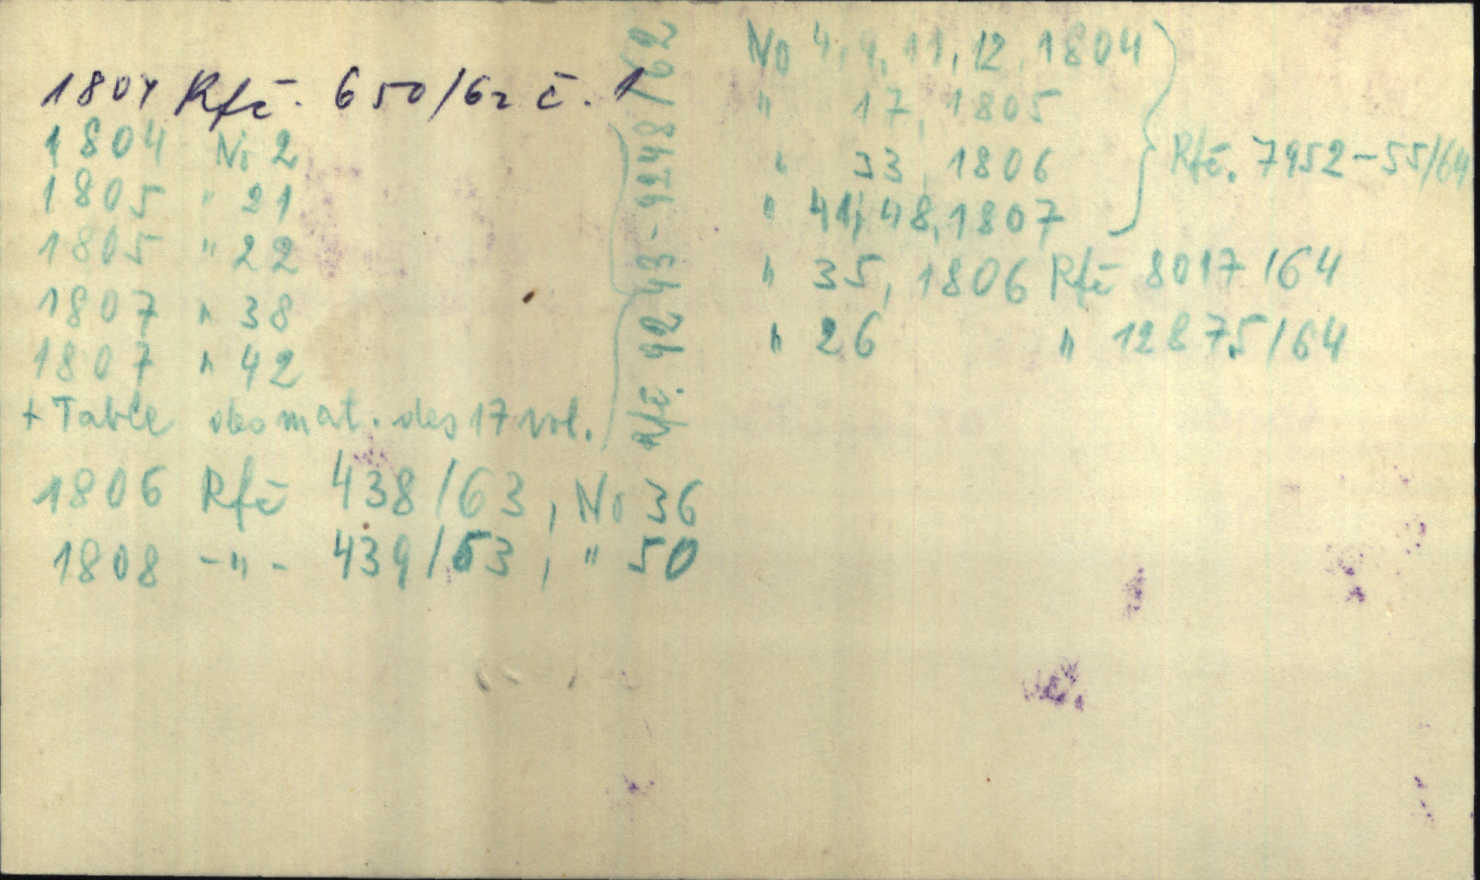 1804 Rfč. 650/62 č. 1
1804 No 2
1805 " 21
1805 " 22
1807 " 38
1807 " 42
+ Table des mat. des 17 vol.
Rfč. 9243-9248/62
1806 Rfč 438/63, No 36
1808 -"- 439/63, " 50
No 4, 9, 11, 12, 1804
" 17, 1805
" 33, 1806
" 41, 48, 1807
Rfč. 7952-55/64
" 35, 1806 Rfč 8017/64
" 26 " 12875/64